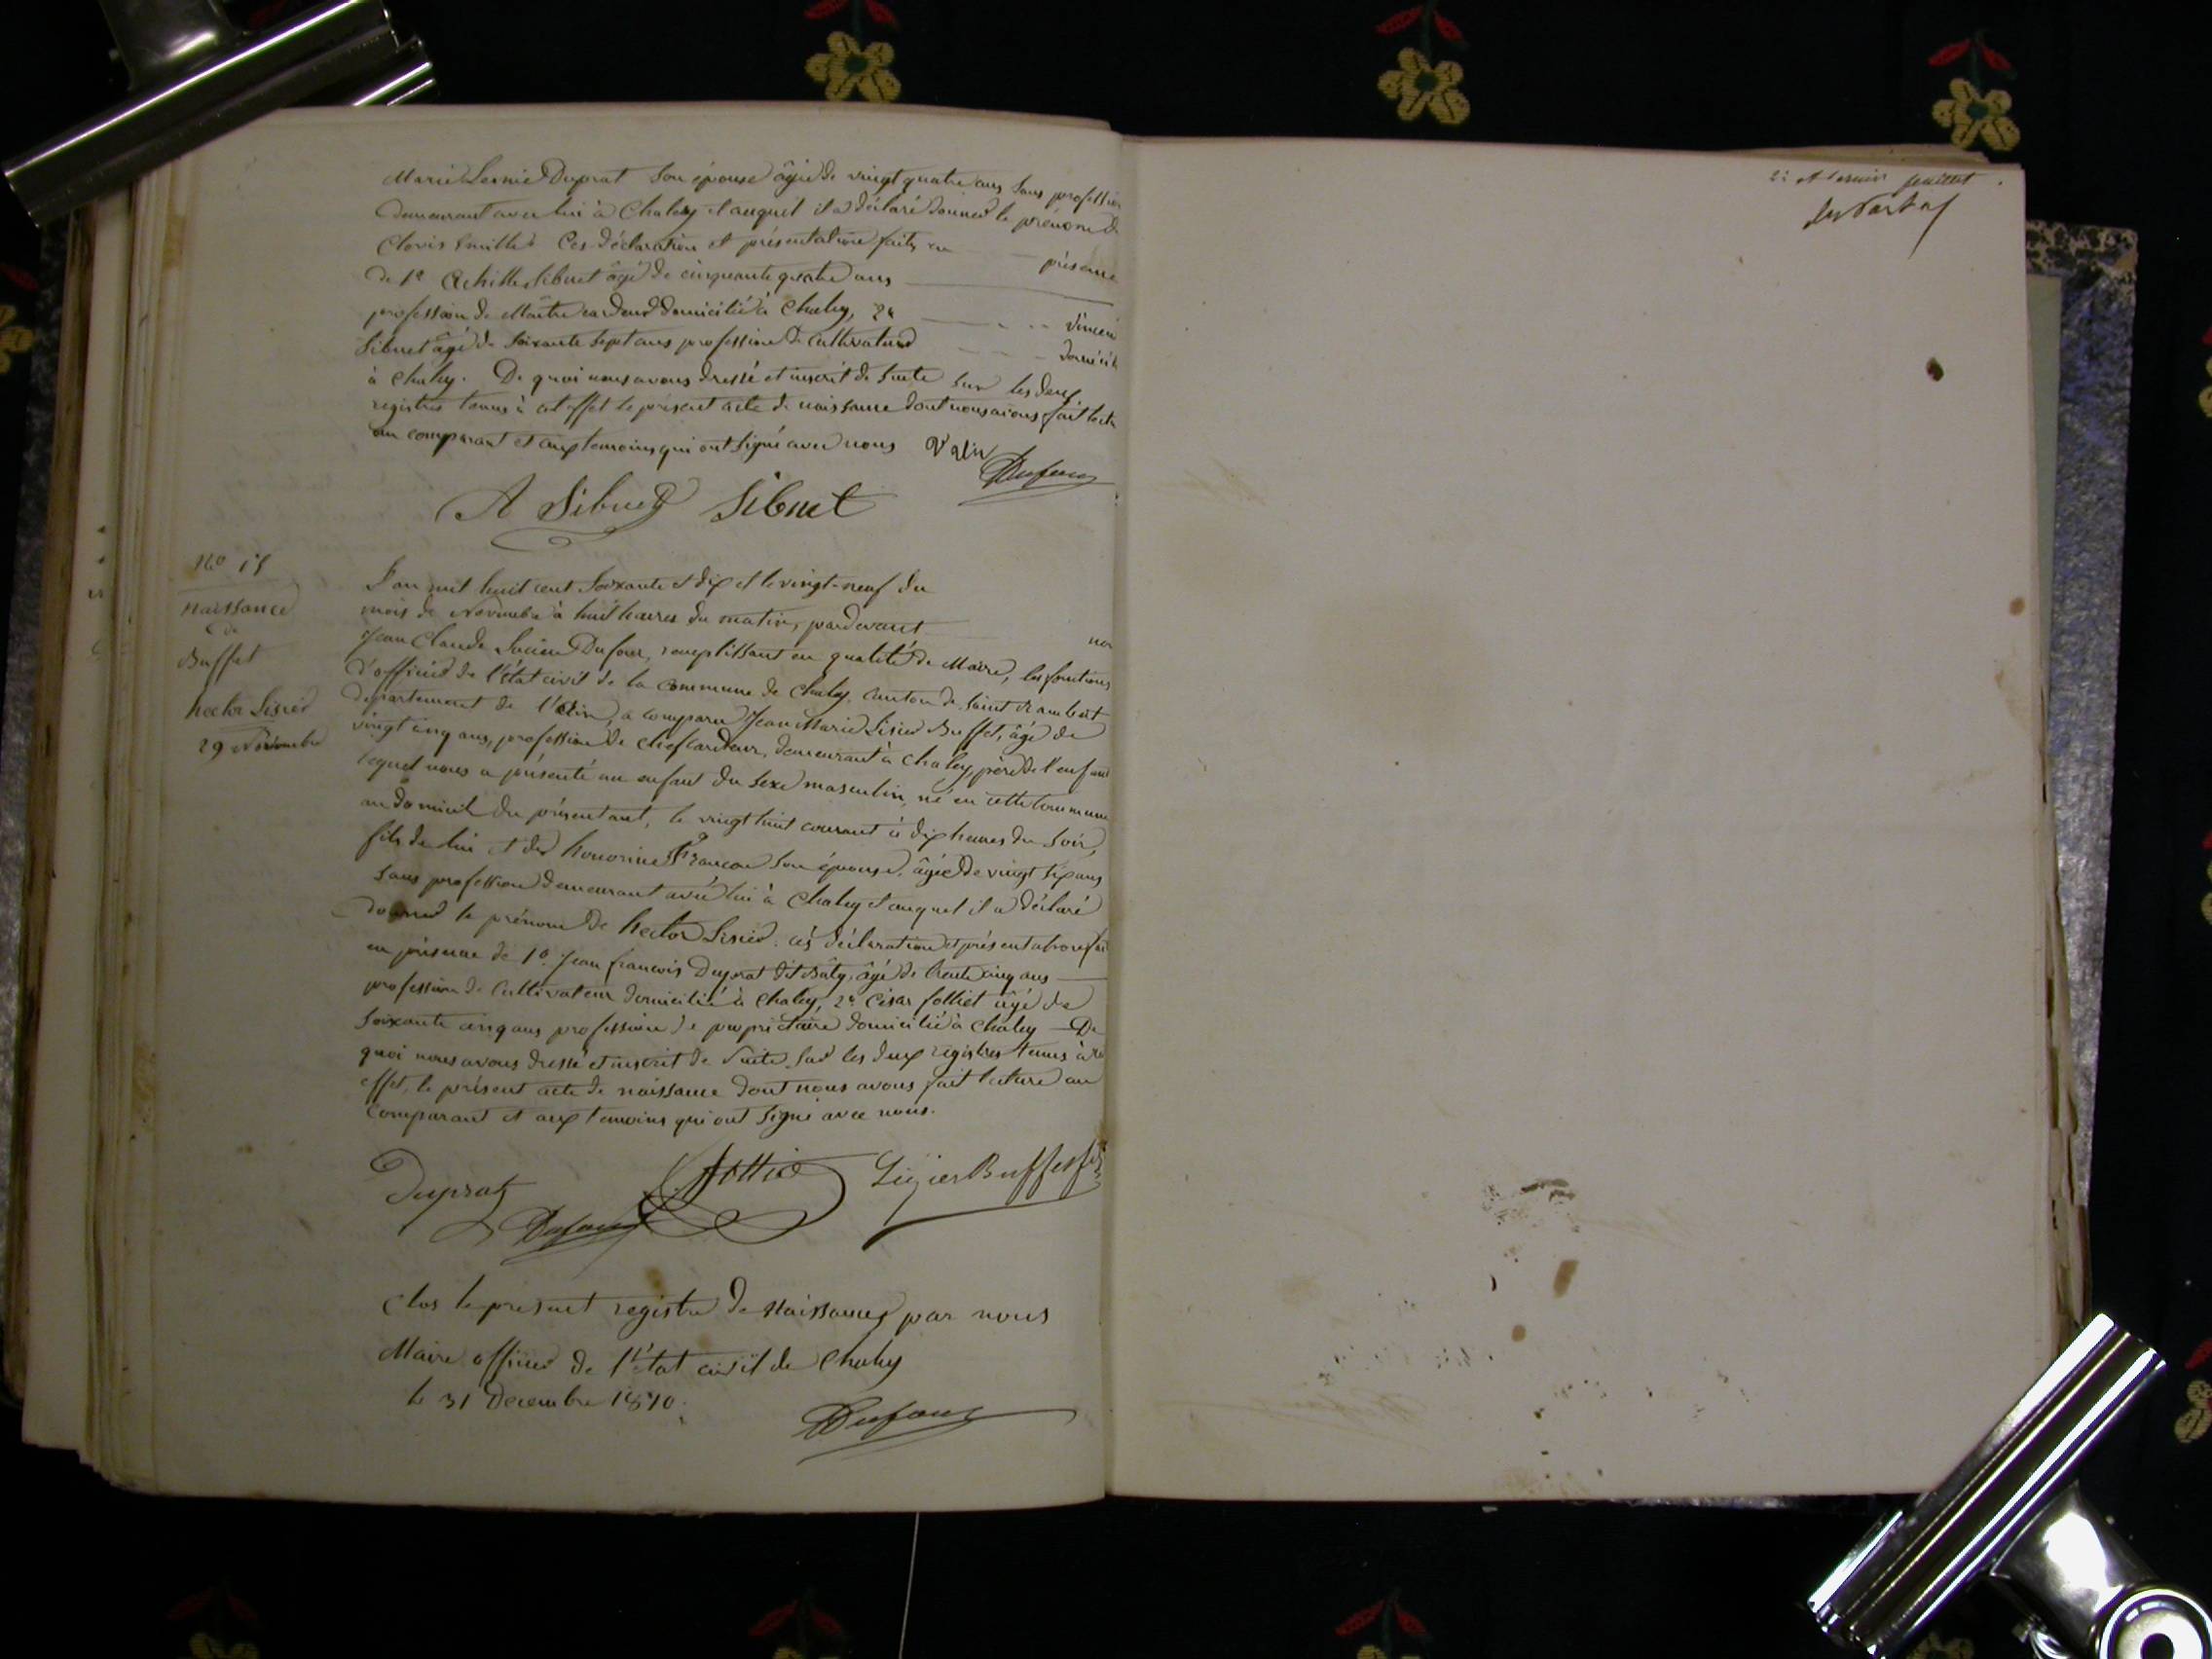 Marie Leonie Duprat son épouse âgée de vingt quatre ans sans profession
demeurant avec lui à Chaley et auquel il a déclaré donner le prénom de
Clovis Emille Ces déclaration et présentation faits en présence
de 1o Achille Sibuet âgé de cinquante quatre ans
profession de Maître cardeur domicilié à Chaley, 2o Vincent
Sibuet âgé de soixante sept ans profession de cultivateur domicilié
à Chaley. De quoi nous avons dressé et inscrit de suite sur les deux
registres tenus à cet effet le présent acte de naissance dont nous avons fait lecture
au comparant et aux temoins qui ont signé avec nous
Dufour
A Sibuet Sibuet
No 15
Naissance
de
Buffet
hector Lisier
29 Novembre
L'an mil huit cent soixante et dix et le vingt-neuf du
mois de Novembre à huit heures du matin, pardevant nous
Jean Claude Lucien Dufour, remplissant en qualité de Maire, les fonctions
d'officier de l'état civil de la commune de Chaley canton de Saint Rambert
departement de l'Ain, a comparu Jean Marie Lisier Buffet, âgé de
vingt cinq ans, profession de chef cardeur, demeurant à Chaley, père de l'enfant
lequel nous a présenté un enfant du sexe masculin, né en cette commune
au domicil du présentant, le vingt huit courant à dix heures du soir,
fils de lui et de honorine Françon son épouse, âgée de vingt six ans
sans profession demeurant avec lui à Chaley et auquel il a déclaré
donner le prénom de hector Lisier. ces déclaration et présentation fait
en présence de 1o Jean francois Duprat dit Bâty, âgé de trente cinq ans
profession de cultivateur domicilié à Chaley, 2o César folliet âgé de
soixante cinq ans profession de propriétaire domicilié à Chaley — De
quoi nous avons dressé et inscrit de suite sur les deux registres tenus à cet
effet, le présent acte de naissance dont nous avons fait lecture au
comparant et aux temoins qui ont signé avec nous.
Duprat folliet Lizier Buffet fils
Dufour
Clos le présent registre de Naissances par nous
Maire officier de l'état civil de Chaley
le 31 Decembre 1870.
Dufour
2e et dernier feuillet